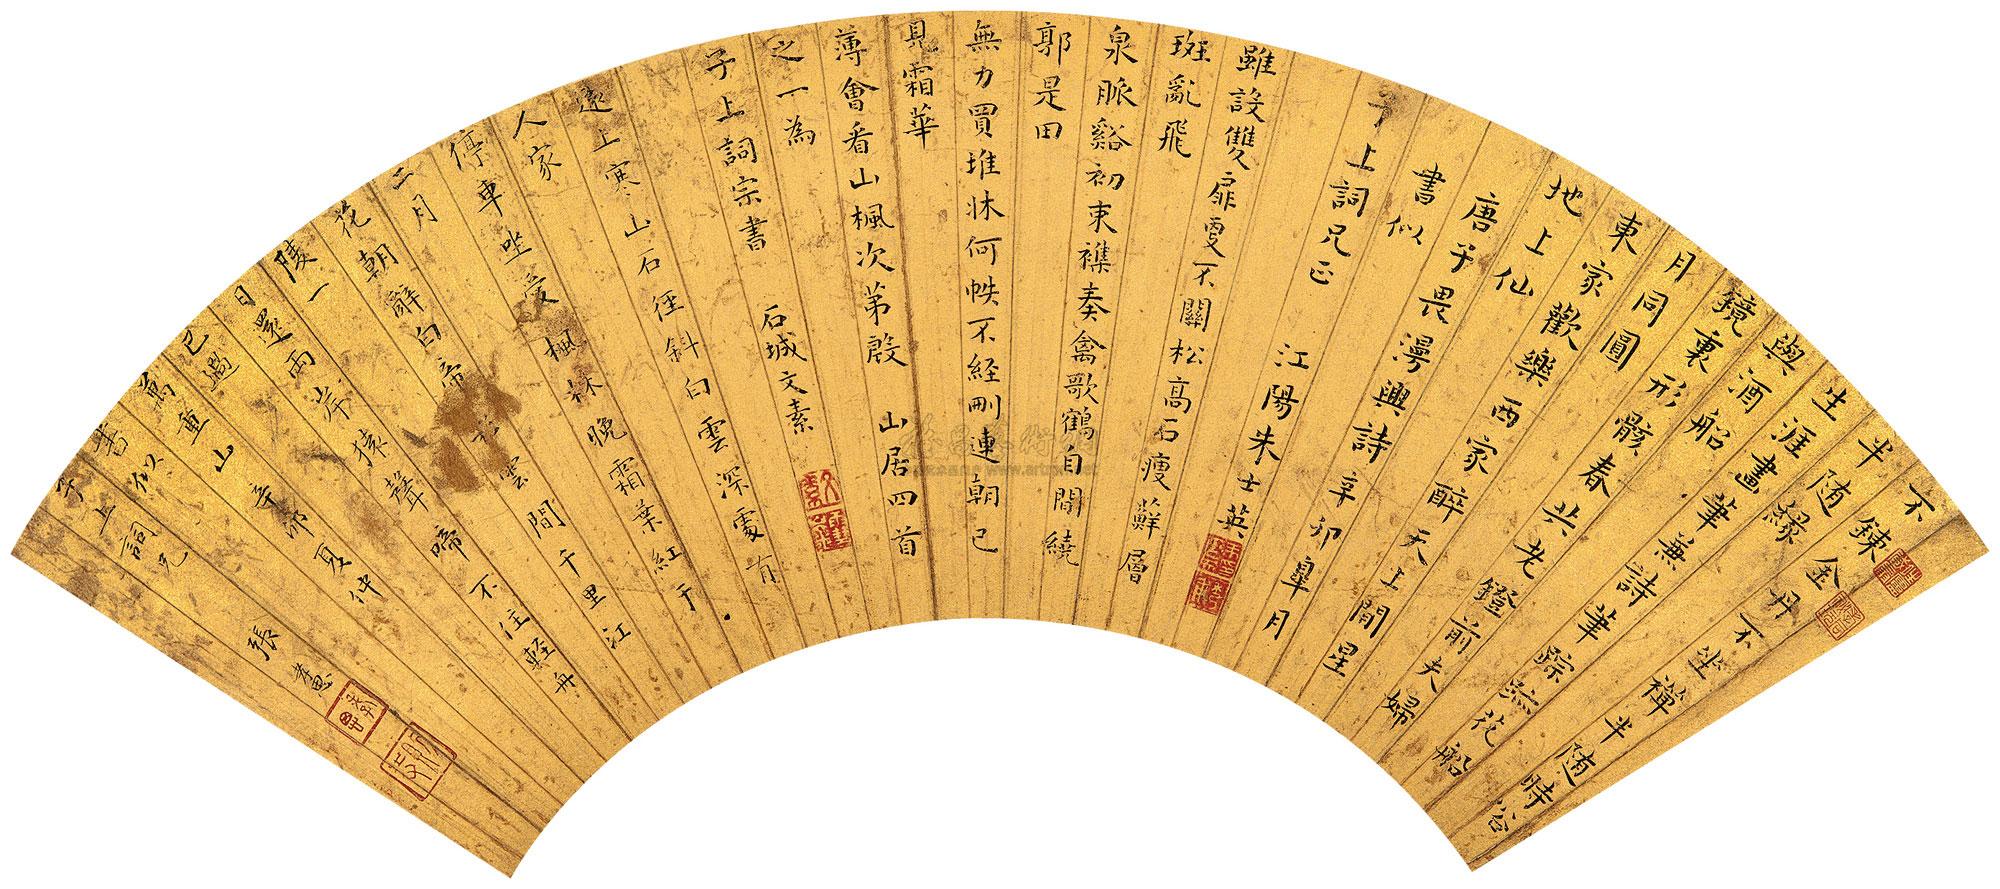 不鍊金丹不坐禪半随時俗
半随緣
生涯畫筆無詩筆踪跡花船
與酒船
鏡裏形骸春共老鐙前夫婦
月同圓
東家歡樂西家醉天上閒星
地上仙
唐子畏漫興詩辛卯皐月
書似
子上詞兄正 江陽朱士英
雖設雙扉更不關松高石瘦蘚層
斑亂飛
泉脈谿初束襍奏禽歌鶴自閒繞
郭是田
無力買堆牀何帙不經刪連朝已
見霜華
薄會看山楓次第殷 山居四首
之一為
子上詞宗書 石城文素
遠上寒山石徑斜白雲深處有
人家
停車坐愛楓林晚霜葉紅于
二月
花 朝辭白帝彩雲間千里江
陵一
日還兩岸猿聲啼不住輕舟
已過
萬重山 辛卯夏仲
書似
子上詞兄 張